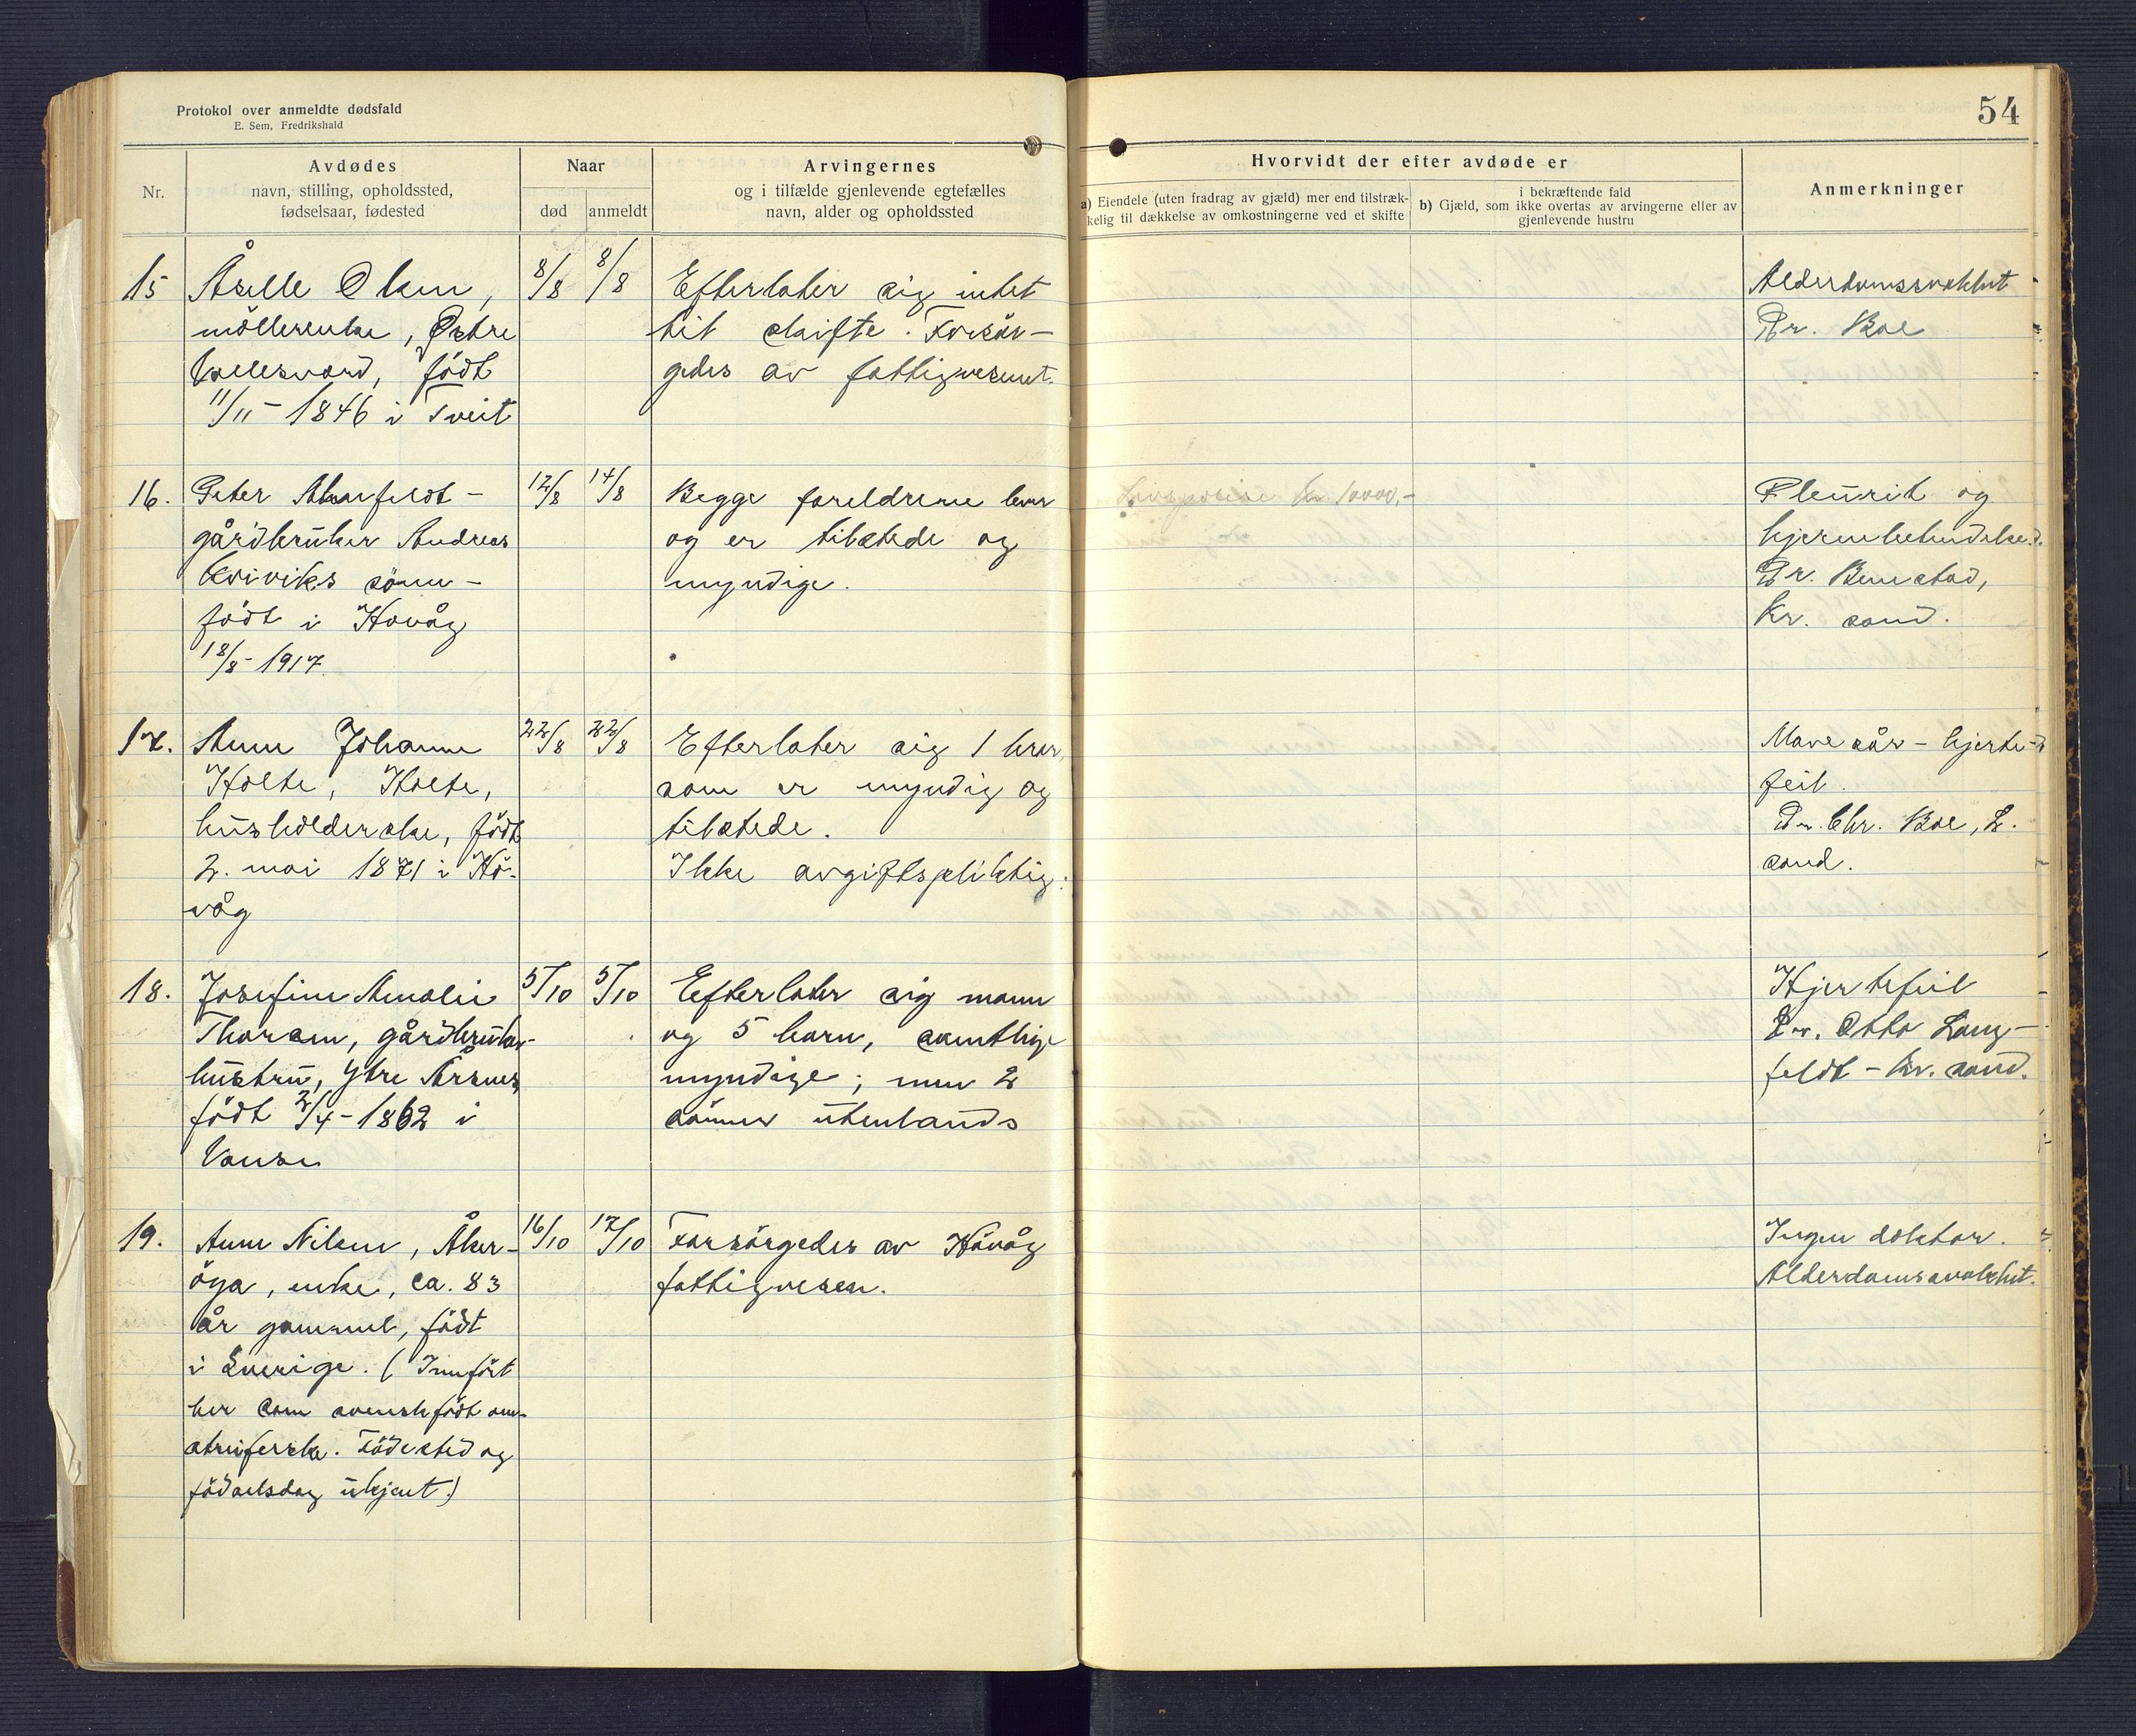 Protokol over anmeldte dødsfald
E. Sem, Fredrikshald
54
Nr.
Avdødes
navn, stilling, opholdssted,
fødselsaar, fødested
Naar
død
anmeldt
Arvingernes
og i tilfælde gjenlevende egtefælles
navn, alder og opholdssted
Hvorvidt der efter avdøde er
a) Eiendele (uten fradrag av gjæld) mer end tilstræk-
kelig til dækkelse av omkostningerne ved et skifte
i bekræftende fald
b) Gjæld, som ikke overtas av arvingerne eller av
gjenlevende hustru
Anmerkninger
15
Åselle Olsen,
möllerenke, Østre
Vallesværd, födt
11/11 - 1846 i Tveit
8/8
8/8
Efterlater sig intet
til skifte. Forsör-
gedes av fattigvesenet.
Alderdomssvakhet
Dr. Boe
16.
Peter
gårdbruker Andreas
Kviviks sönn -
födt i Hovåg
18/8 - 1917.
12/8
14/8
Begge foreldrene lever
og er tilstede og
myndige.
Livspolise kr 10000,-
Pleurit og
hjernebetendelse.
Dr. Benestad,
Kr. sand.
17.
Anne Johanne
Holte, Holte,
husholderske, födt
2. mai 1871 i Hö-
våg
22/8
22/8
Efterlater sig 1 bror,
som er myndig og
tilstede.
Ikke avgiftspliktig.
Mavesår - hjerte-
feil.
Dr. Chr. Boe, L.
sand.
18.
Josefine Amalie
Thorsen, gårdbruker-
hustru, Ytre Årsnes,
födt 2/4 - 1862 i
Vanse
5/10
5/10
Efterlater sig mann
og 5 barn, samtlige
myndige; men 2
sönner utenlands
Hjertefeil
Dr. Otto Lang-
feldt - Kr. sand.
19.
Anne Nilsen, Åker-
öya, enke, ca. 83
år gammel, födt
i Sverige. (Innfört
her som svenskfödt om-
streiferske. Födested og
födselsdag ukjent.)
16/10
17/10
Forsörgedes av Hövåg
fattigvesen.
Ingen doktor.
Alderdomsvakhet.